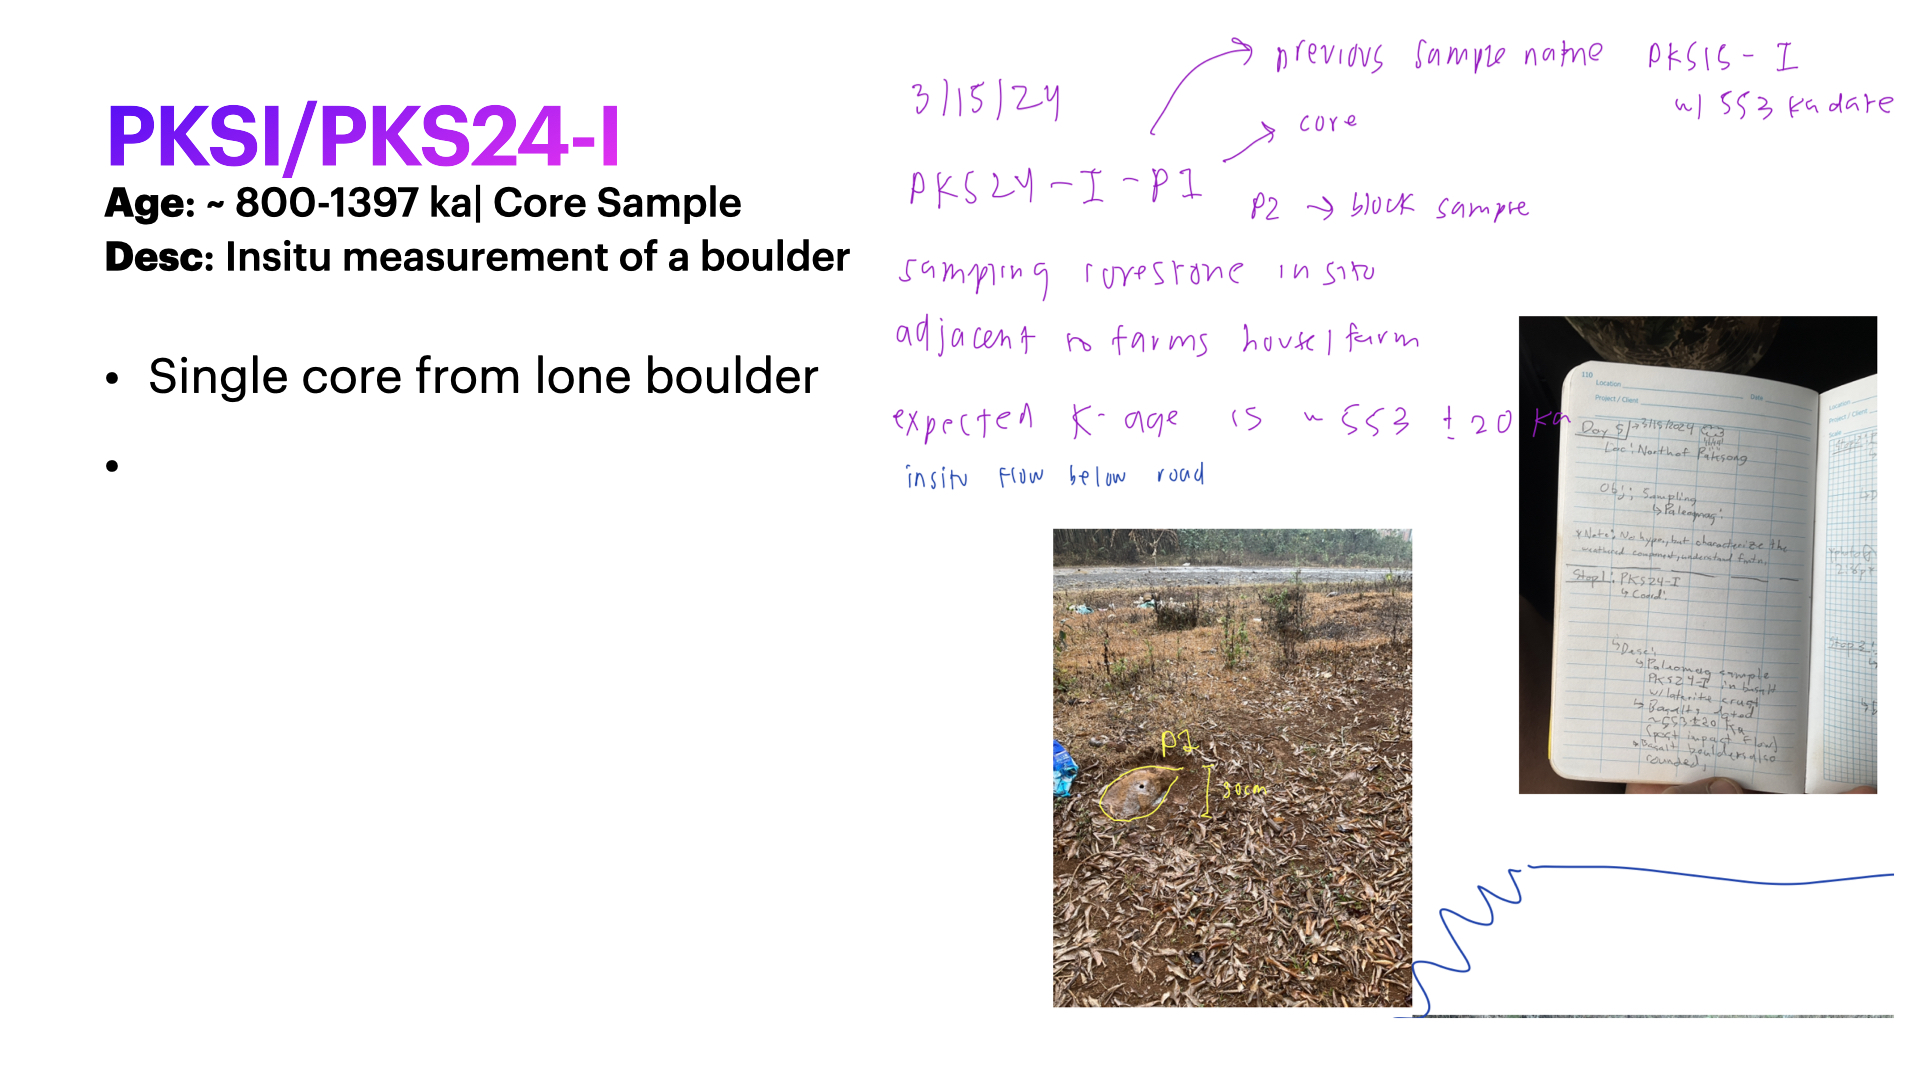 PKSI/PKS24-I
Age: ~ 800-1397 ka| Core Sample
Desc: Insitu measurement of a boulder
• Single core from lone boulder
•
3/15/24
previous sample name PKS15-I
w/ 553 ka date
core
PKS24-I-P1
P2 → block sample
sampling corestone in situ
adjacent to farms house/farm
expected K-age is ~ 553 ± 20 ka
insitu flow below road
P1
30cm
110
Location
Date
Project / Client
Day 5 3/15/2024
Loc: North of Paksong
Obj: Sampling
↳ Paleomag:
*Note: No hyper, but characterize the
weathered component, understand
Stop 1: PKS24-I
↳ Coord:
↳ Desc:
↳ Paleomag sample
PKS24-I in basalt
w/ laterite crust
↳ Basalts dated
~553±20 ka
(post impact flow)
Basalt boulders also
rounded,